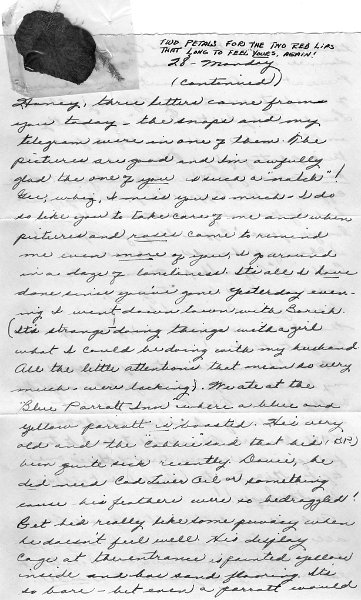 TWO PETALS FOR THE TWO RED LIPS
THAT LONG TO FEEL YOURS, AGAIN!
28 - Monday
(Continued)
Honey, three letters came from
you today - the snaps and my
telegram were in one of them. The
pictures are good and I'm awfully
glad the one of you is such a "natch"!
Gee, whiz, I miss you so much - I do
so like you to take care of me and when
pictures and roses come to remind
me even more of you, I go around
in a daze of loneliness. It's all I have
done since you've gone. Yesterday even-
ing I went down town with
(It's strange! doing things with a girl
what I could be doing with my husband
All the little attentions that mean so very
much - were lacking). We ate at the
"Blue Parratt Inn" where a blue and
yellow parratt is boasted. His very
old and the said that he'd
been quite sick recently. Davie, he
did need Cod Liver Oil or something
cause his feathers were so bedraggled!
Bet he'd really like some when
he doesn't feel well. His display
cage at the entrance is painted yellow
inside and has sand flooring. It's
so bare - but even a parratt would